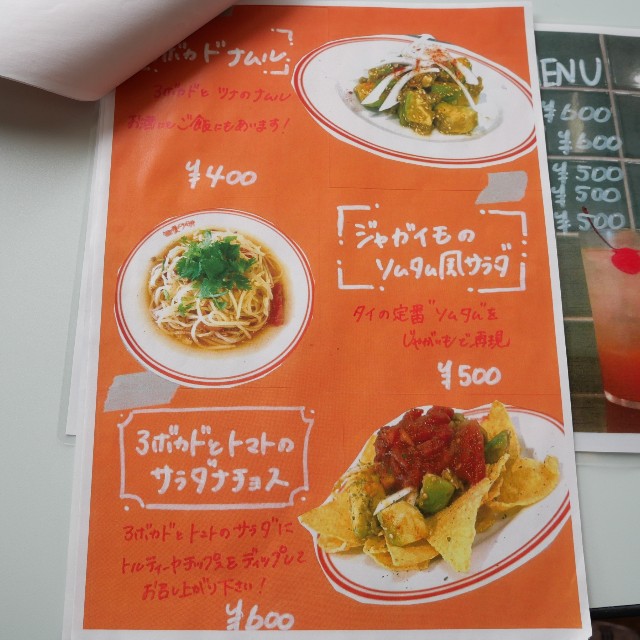 ボカドナムル
3ボカドとツナのナムル
お酒にもご飯にもあいます!
¥400
ジャガイモの
ソムタム風サラダ
タイの定番"ソムタム"を
じゃがいもで再現
¥500
3ボカドとトマトの
サラダナチョス
3ボカドとトマトのサラダに
トルティーヤチップスをディップして
お召し上がり下さい!
¥600
ENU
¥600
¥600
¥500
¥500
¥500